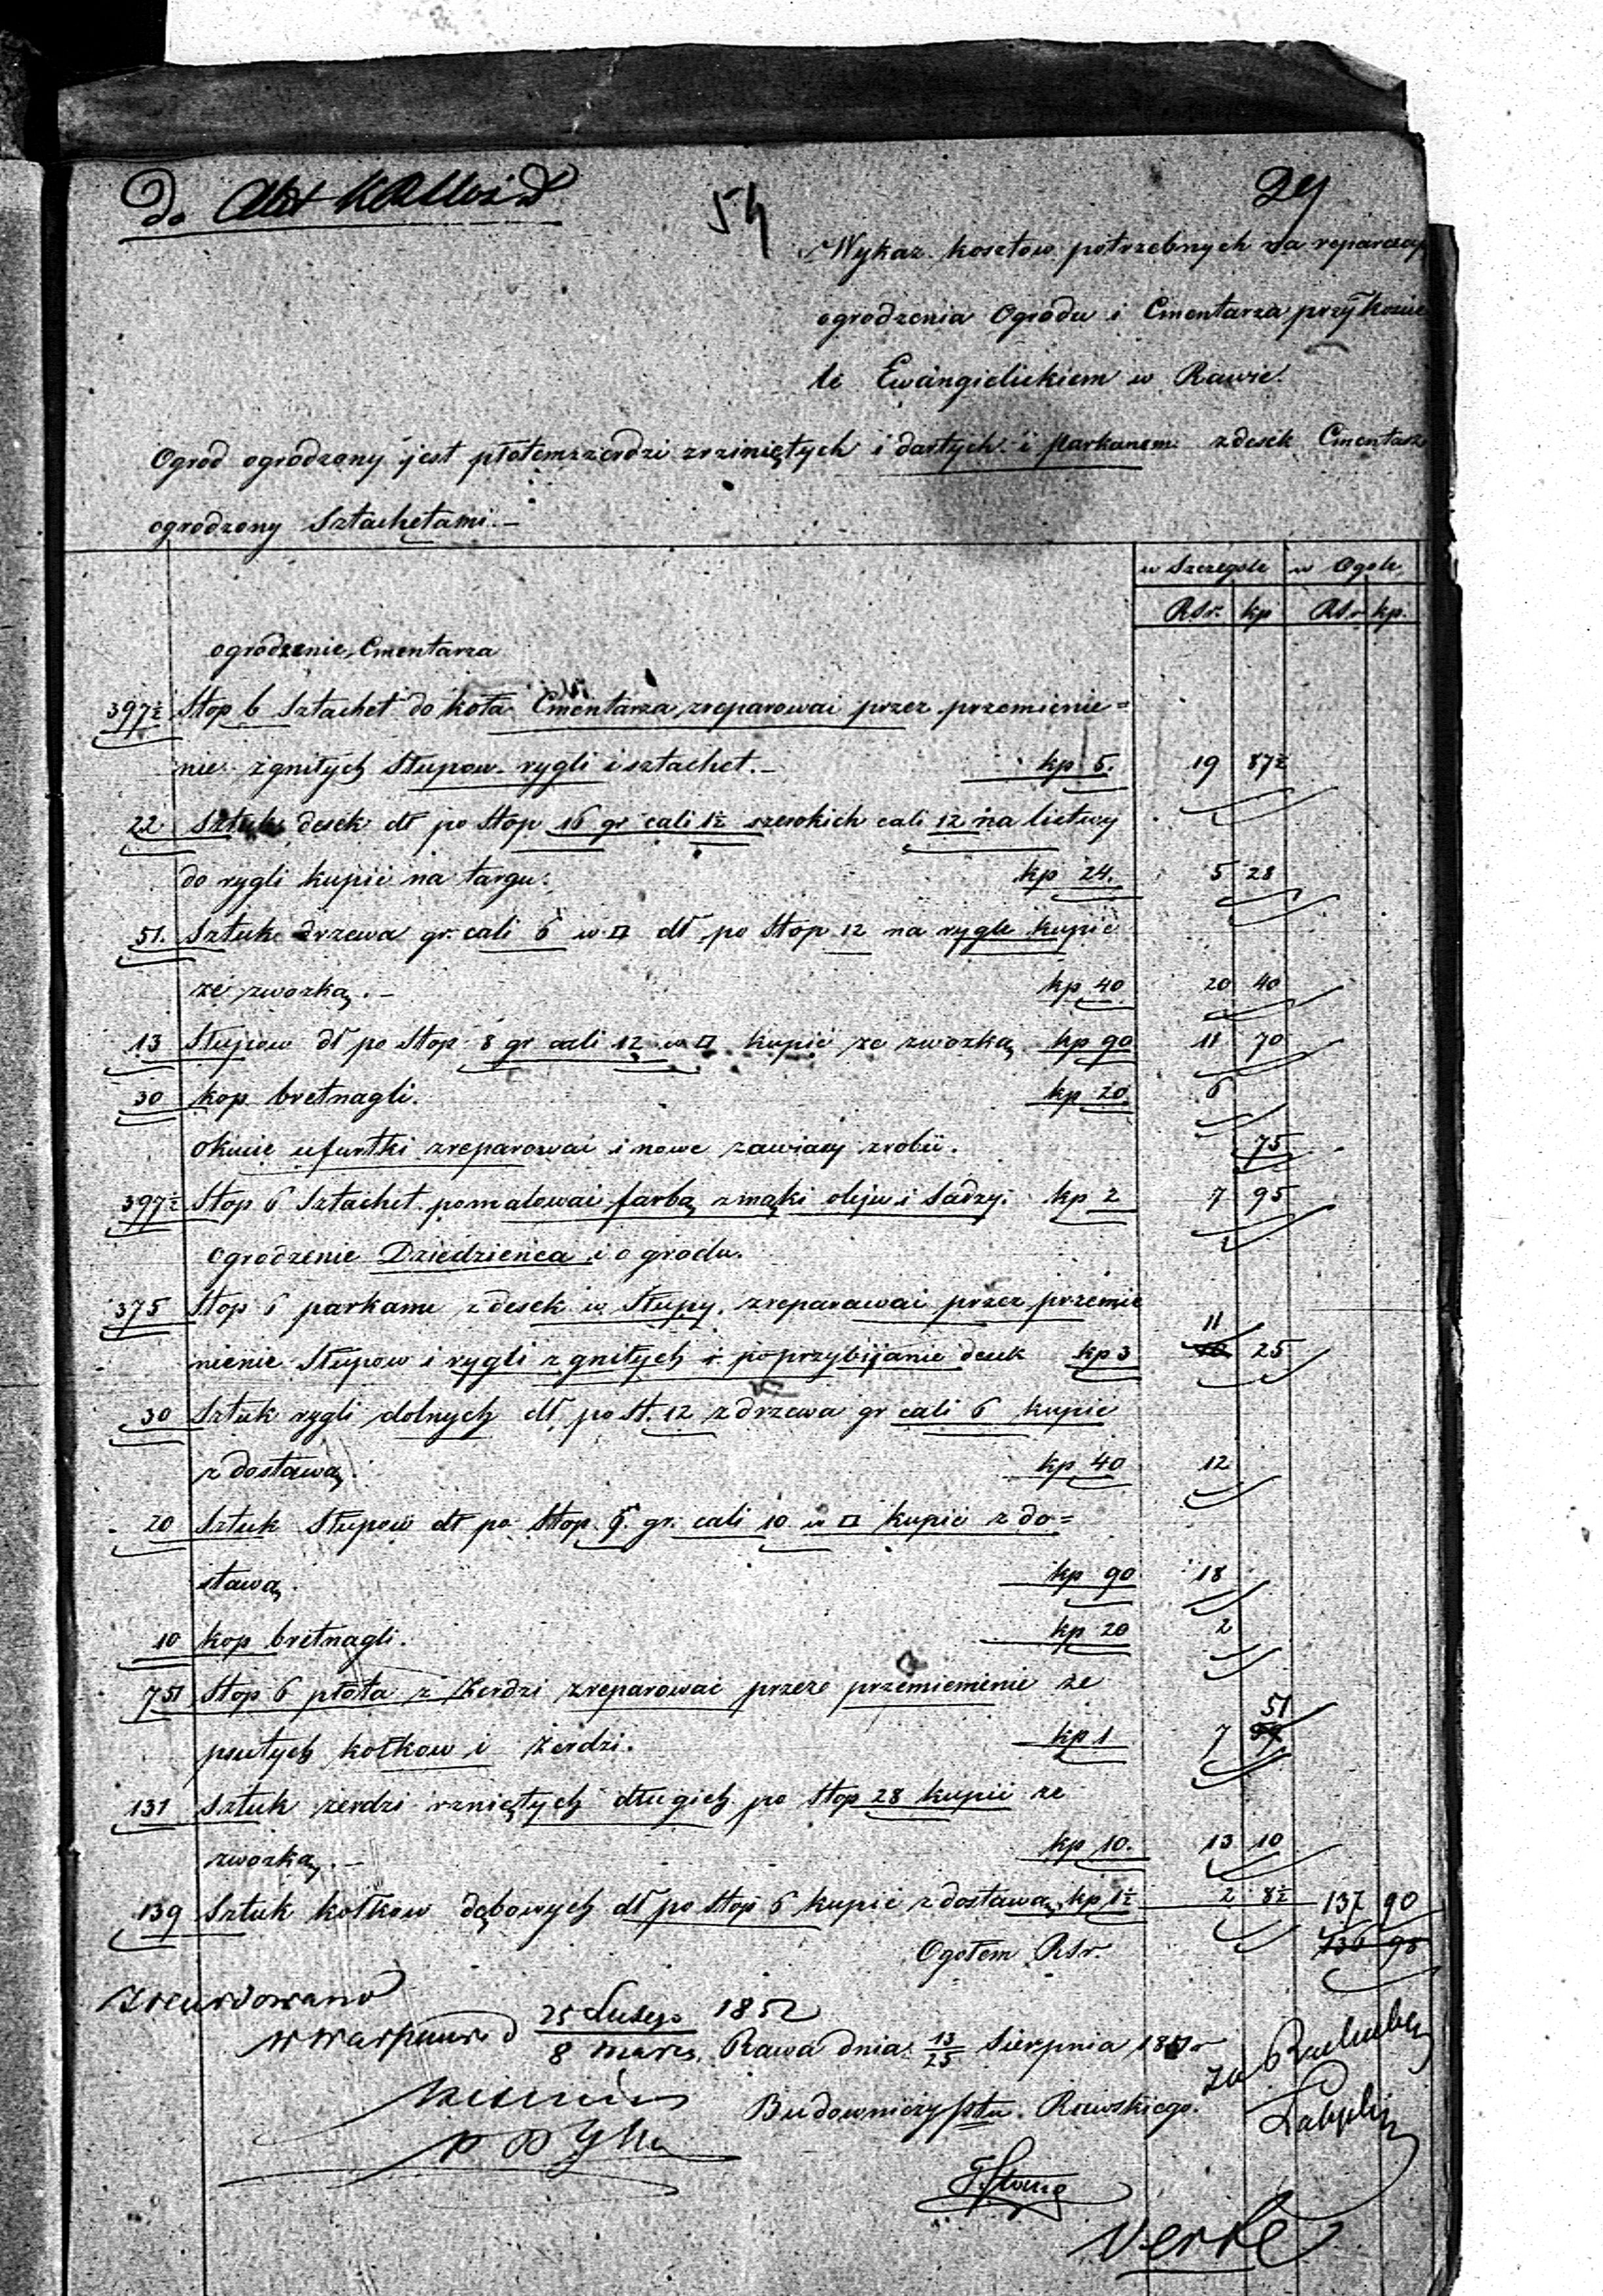 do Akt
54
29
Wykaz kosztow potrzebnych na reparacyą
ogrodzenia Ogrodu i Cmentarza przy Koście
le Ewangielickiem w Rawie.
Ogrod ogrodzony jest płotem z żerdzi zrzniętych i dartych i parkanem z desek Cmentarz
ogrodzony Sztachetami. –
w Szczegole w Ogole
RSr. kp RSr kp.
ogrodzenie Cmentarza
397½ Stop b Sztachet do koła Cmentarza zreparować przez przemienie=
nie zgnitych Słupow rygli i sztachet. – kp 5. 19 87½
22 Sztuk desek dł po Stop 16 gr cali 1½ szerokich cali 12 na listwy
do rygli kupić na targu. kp 24. 5 28
51. Sztuk drzewa gr. cali 6 w □ dł po Stop 12 na rygle kupić
ze zwozką. – kp 40 20 40
13 Słupow dł po Stop 8 gr cali 12 w □ kupić ze zwozką kp 90 11 70
30 kop bretnagli. kp 20. 6
okucie u furtki zreparować i nowe zawiasy zrobić. 75
397½ Stop b Sztachet pomalować farbą z mąki oleju i Sadzy. kp 2 7 95
Ogrodzenie Dziedzieńca i ogrodu.
375 Stop b parkanu z desek w Słupy zreparować przez przemie
nienie Słupow i rygli zgnitych i poprzybijanie desek kp 3 11 25
30 Sztuk rygli dolnych dł po St. 12 z drzewa gr cali 6 kupić
z dostawą. kp 40 12
20 Sztuk Słupow dł po Stop 9 gr. cali 10 w □ kupić z do=
stawą. kp 90 18
10 kop bretnagli. kp 20 2
751 Stop b płota z żerdzi zreparować przez przemienienie ze
psutych kołkow i żerdzi. kp 1 7 51
131 Sztuk żerdzi rzniętych długich po Stop 28 kupić ze
zwozką. – kp 10. 13 10
139 Sztuk kołkow dębowych dł po Stop 6 kupić z dostawą kp 1½ 2 8½ 137 90
Ogołem RSr. 136 98
Zrewidowano
w Warszawie d 25 Lutego 1852
8 Marca
Rawa dnia 13/25 Sierpnia 1851 r
Budowniczy ptu. Rawskiego.
za